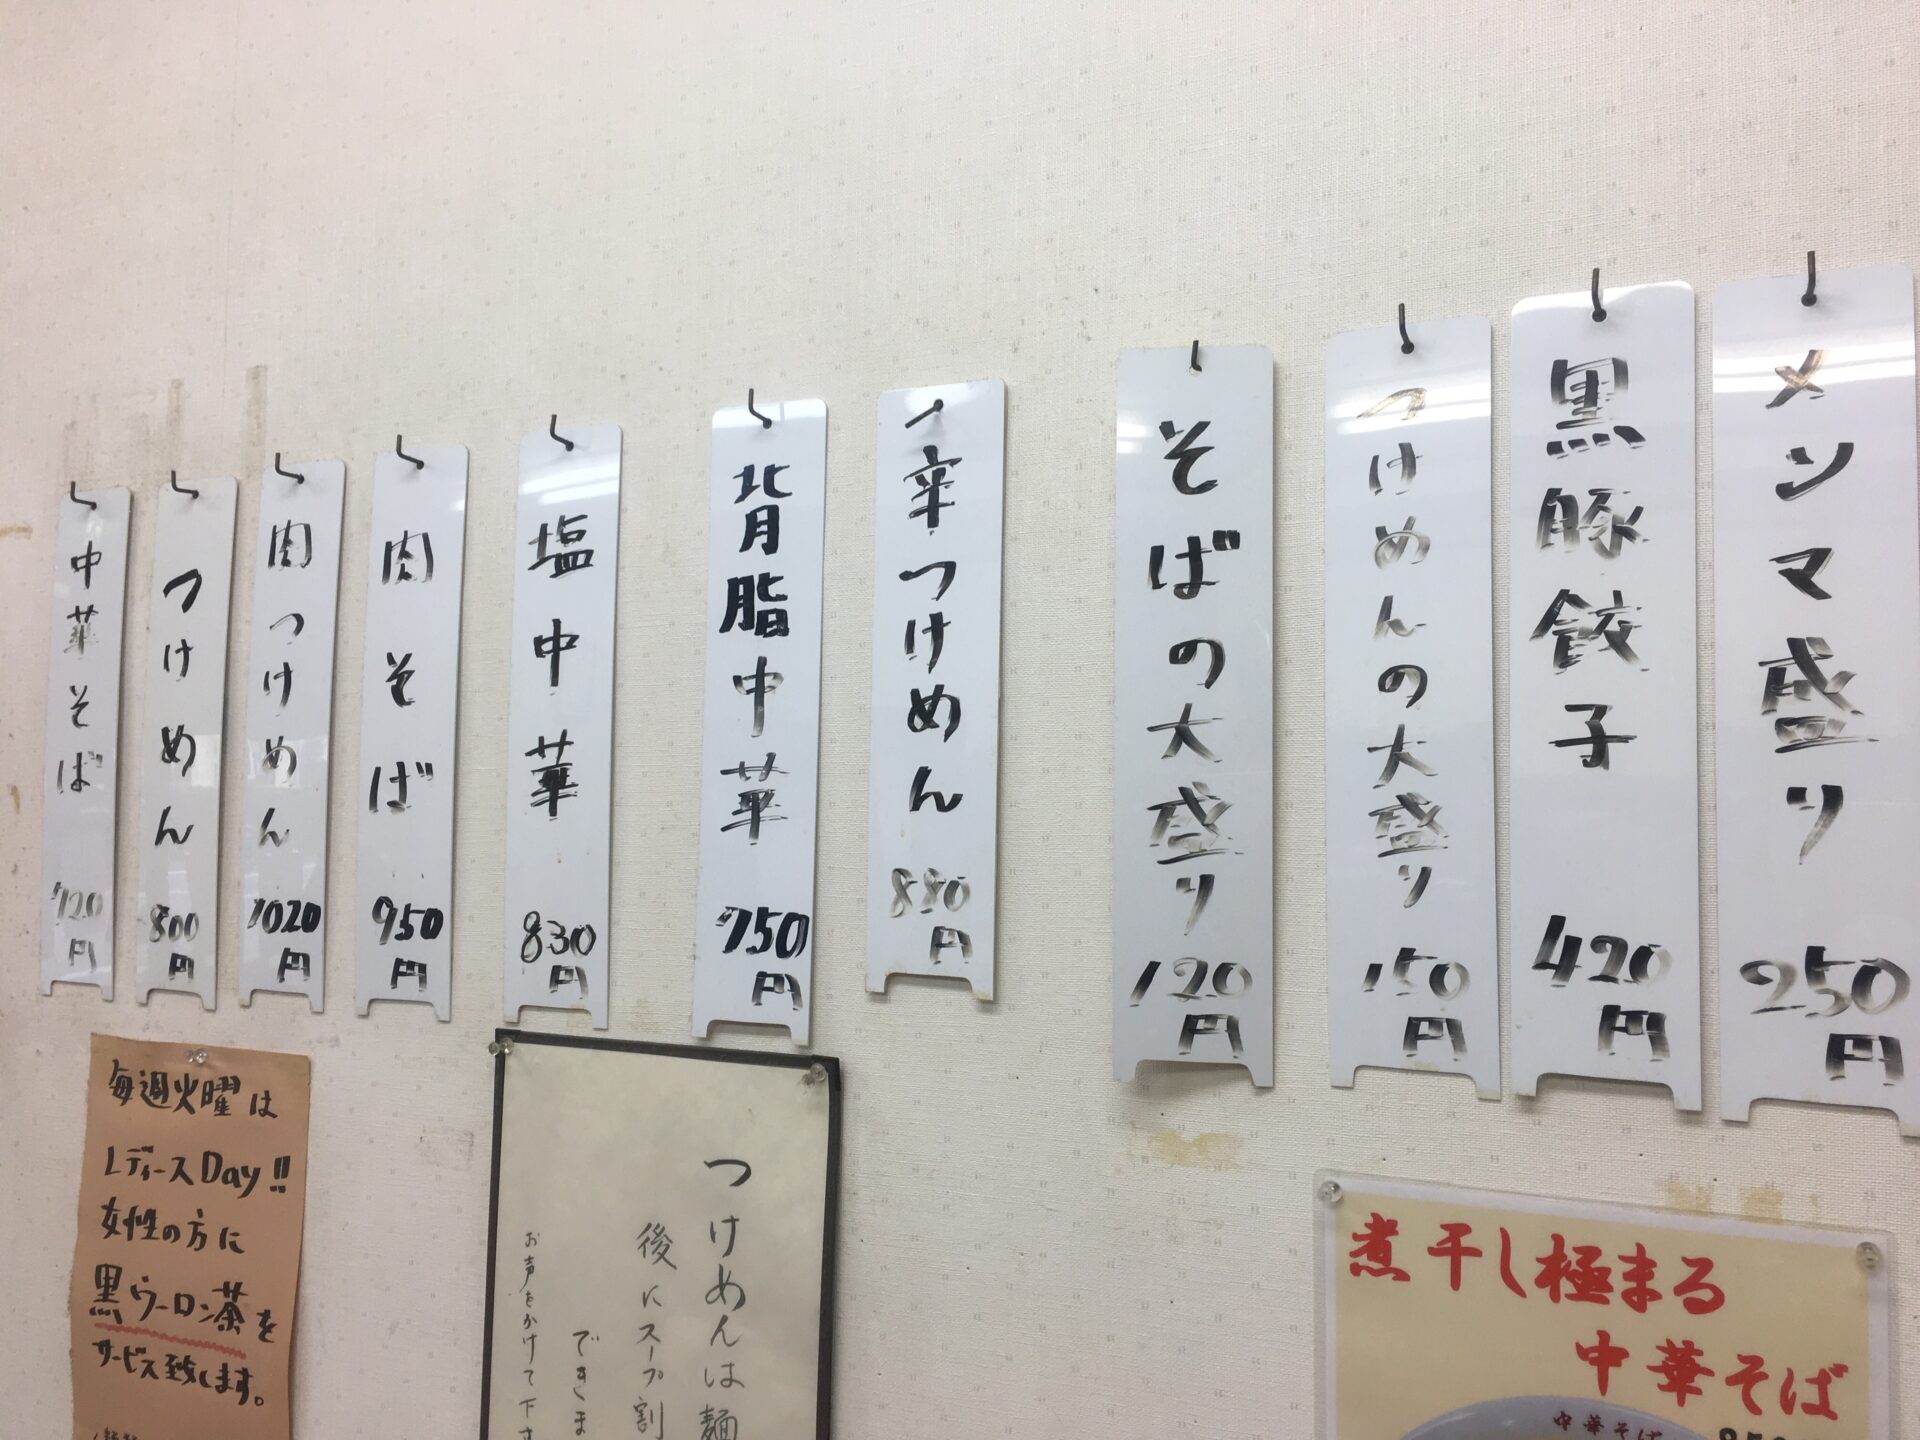 中華そば 720円
つけめん 800円
肉つけめん 1020円
肉そば 950円
塩中華 830円
背脂中華 750円
辛つけめん 880円
そばの大盛り 120円
つけめんの大盛り 150円
黒豚餃子 420円
メンマ盛り 250円
毎週火曜は
レディースDay!!
女性の方に
黒ウーロン茶を
サービス致します。
つけめんは麺
後にスープ割
できま
お声をかけて下さ
煮干し極まる
中華そば
中華そば